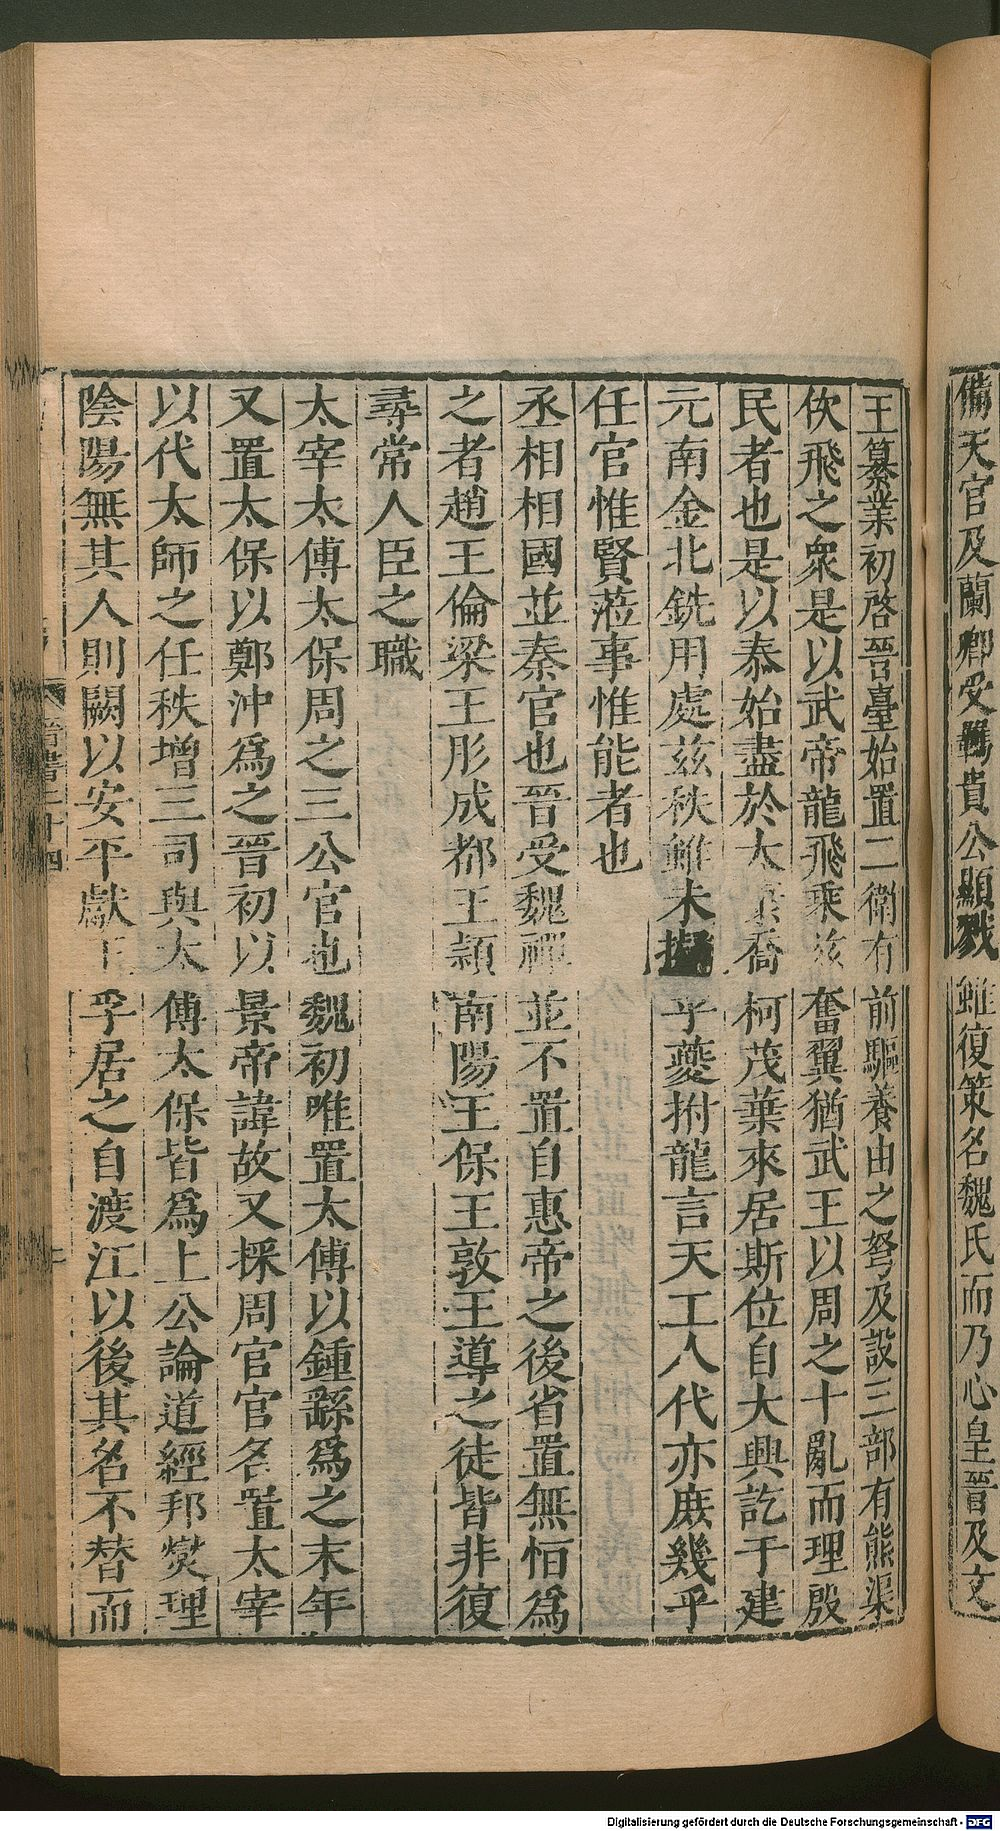 備天官及蘭卿受羈貴公顯戮雖復策名魏氏而乃心皇晉及文
王纂業初啓晉臺始置二衛有前驅養由之弩及設三部有熊渠
佽飛之衆是以武帝龍飛乘兹奮翼猶武王以周之十亂而理殷
民者也是以泰始盡於太康喬柯茂葉來居斯位自大興訖于建
元南金北銑用處兹秩雖未擬乎夔拊龍言天工人代亦庶幾乎
任官惟賢蒞事惟能者也
丞相相國並秦官也晉受魏禪並不置自惠帝之後省置無恒爲
之者趙王倫梁王肜成都王穎南陽王保王敦王導之徒皆非復
尋常人臣之職
太宰太傅太保周之三公官也魏初唯置太傅以鍾繇爲之末年
又置太保以鄭沖爲之晉初以景帝諱故又採周官官名置太宰
以代太師之任秩增三司與太傅太保皆爲上公論道經邦燮理
陰陽無其人則闕以安平獻王孚居之自渡江以後其名不替而
晉書二十四
Digitalisierung gefördert durch die Deutsche Forschungsgemeinschaft - DFG